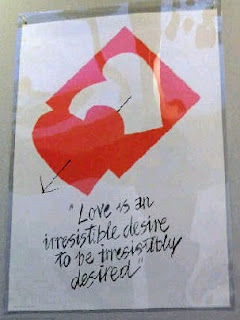 "Love is an
irresistible desire
to be irresistibly
desired"